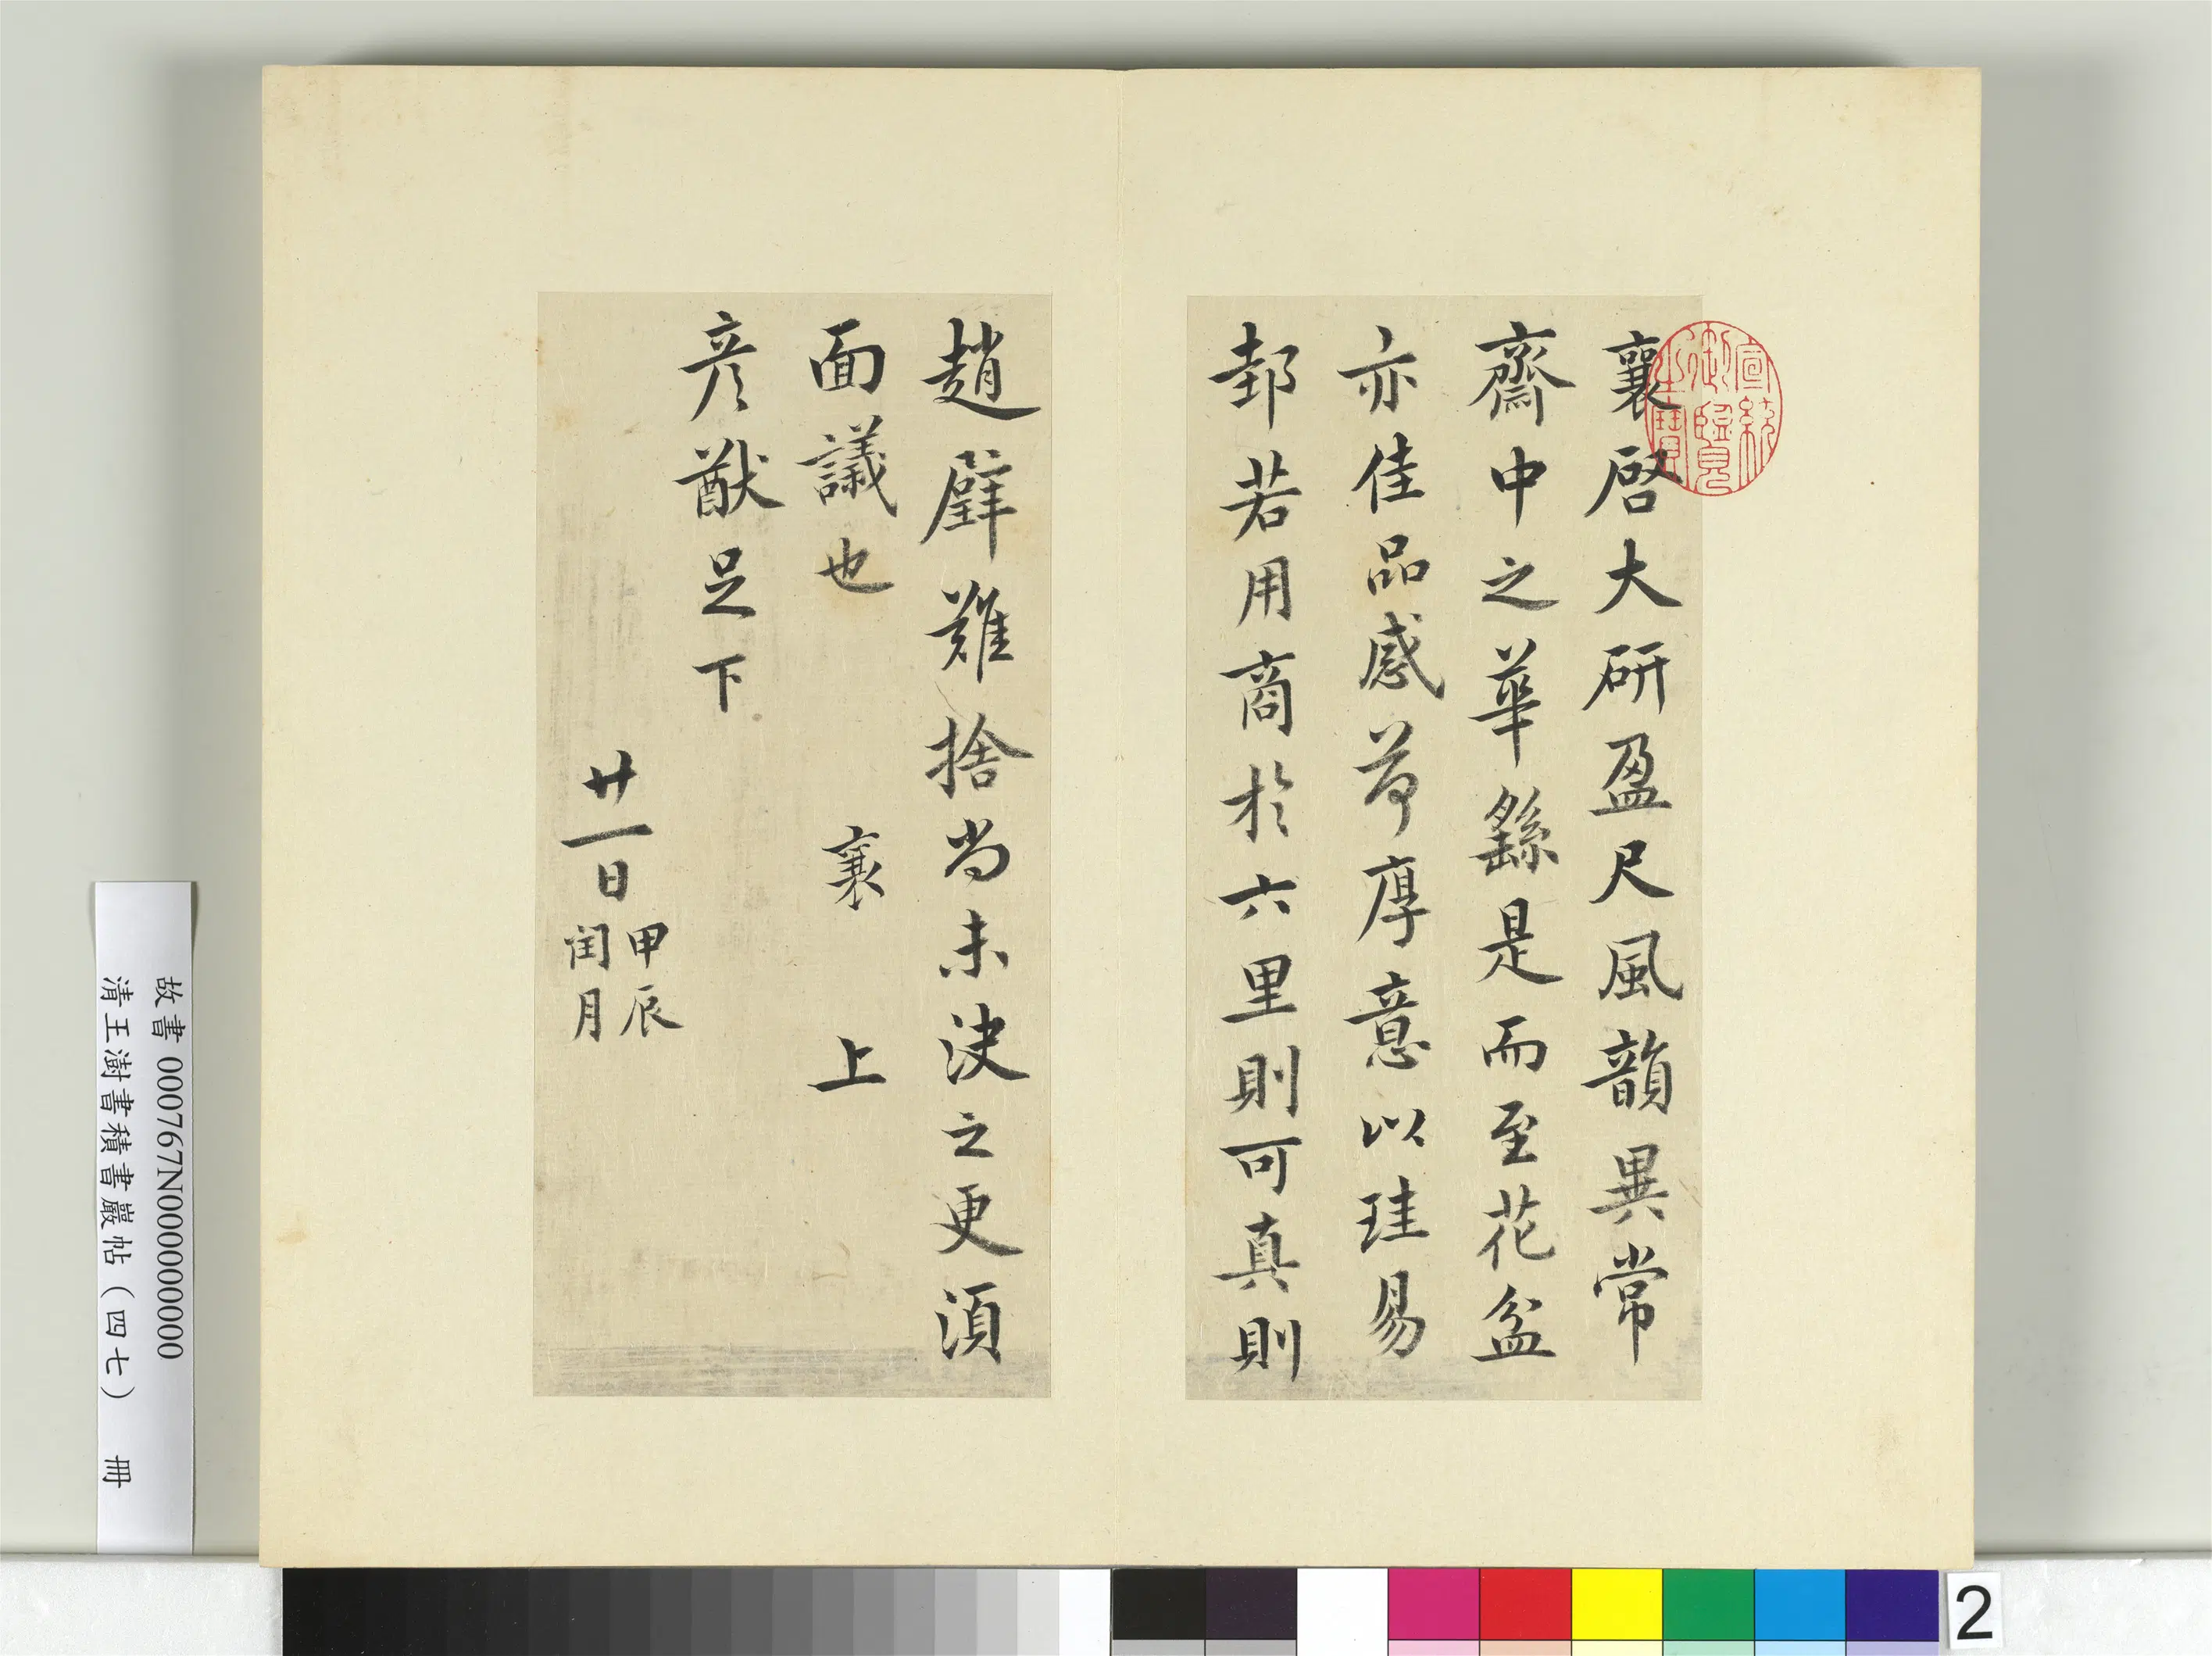 襄啓大研盈尺風韻異常
齋中之華繇是而至花盆
亦佳品感荷厚意以珪易
邽若用商於六里則可真則
趙璧難捨尚未決之更須
面議也 襄 上
彦猷足下
廿一日 甲辰
閏月
宣統
御覽
之寶
故書 000767N000000000
清王澍書積書巖帖(四七) 冊
2